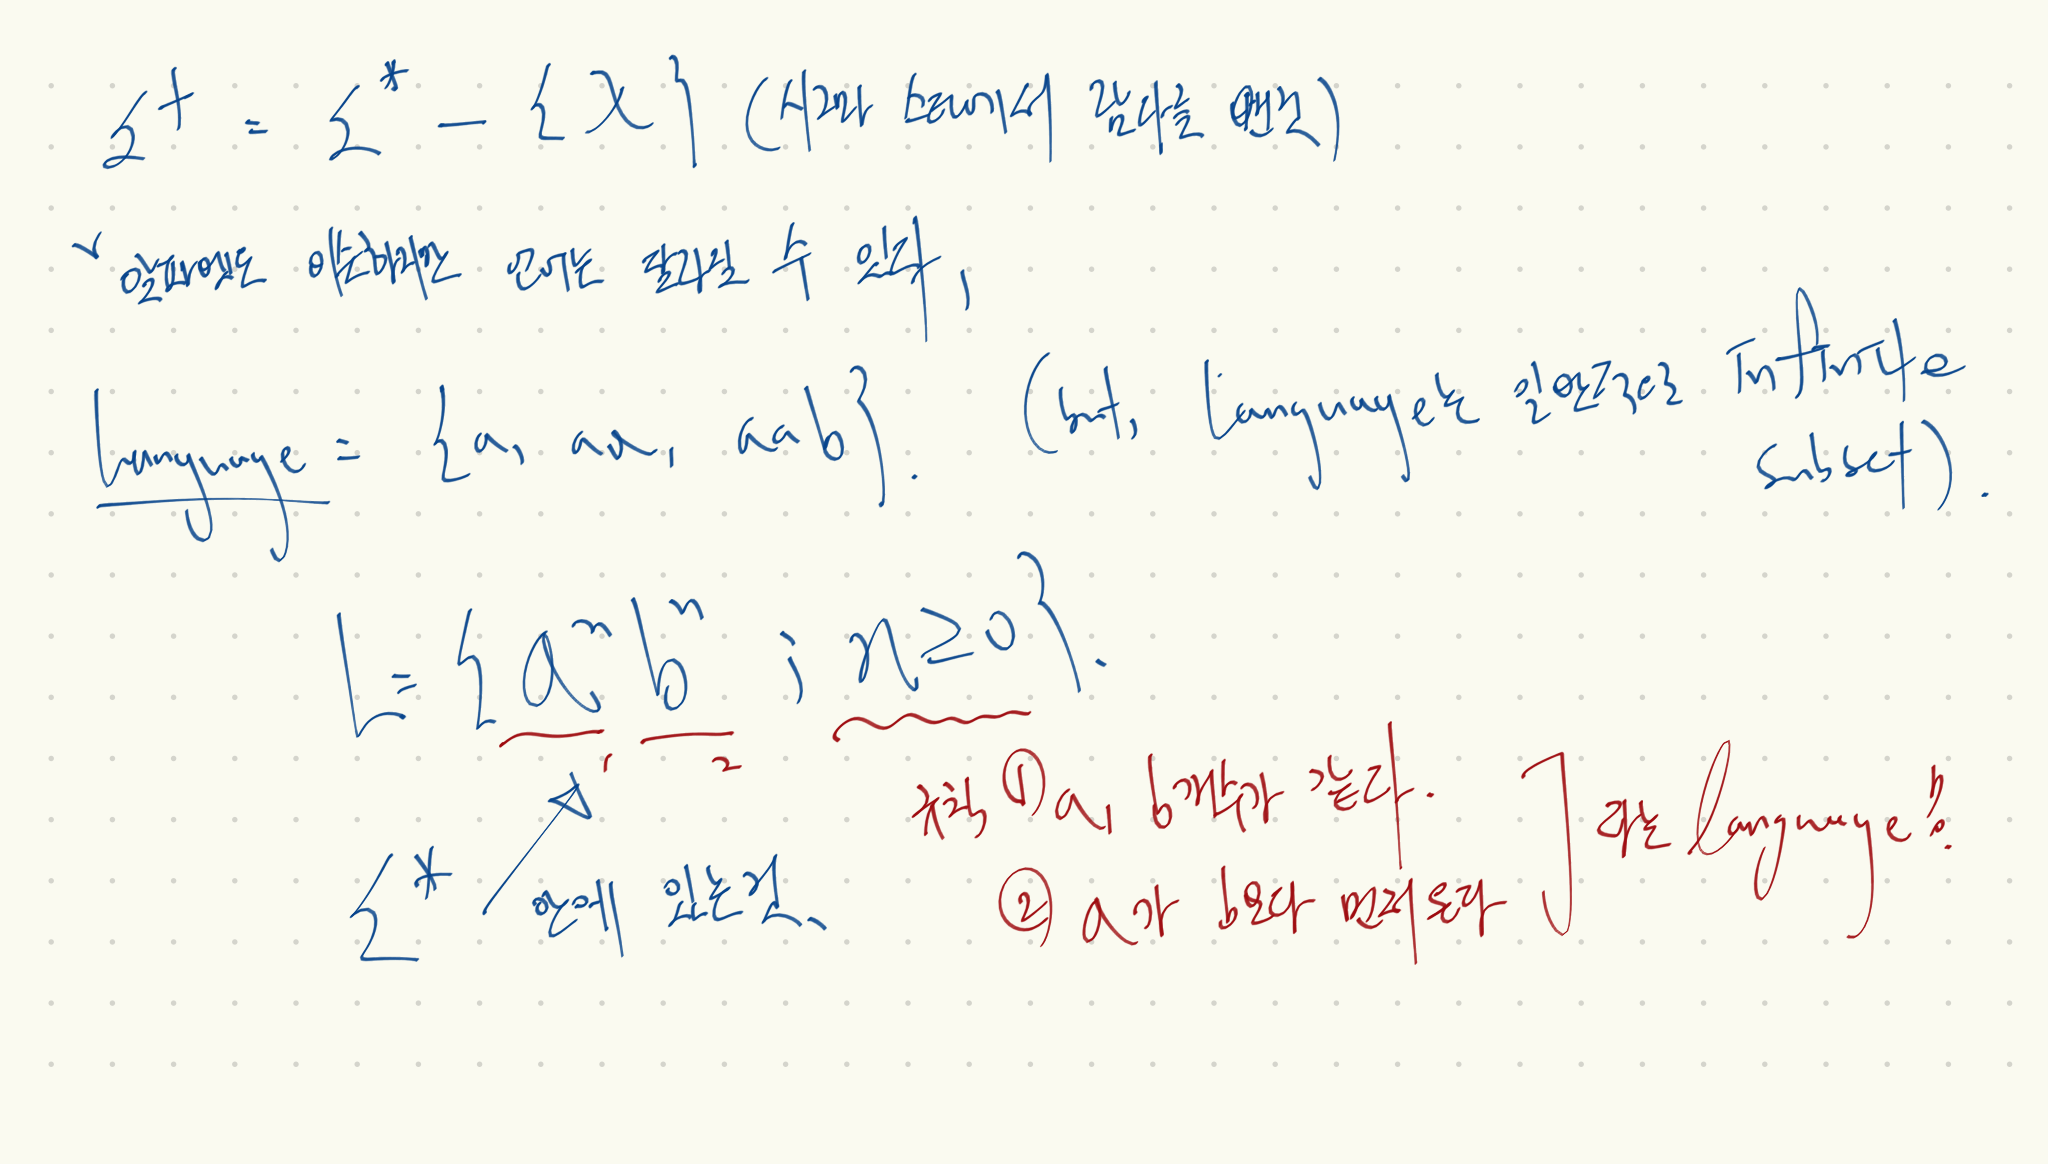 Σ⁺ = Σ* - {λ} (시그마 스타에서 람다를 뺀것)
✓ 알파벳도 이논하지만 언어는 달라질 수 있다,
Language = {a, aa, aab}. (but, Language는 일반적으로 infinite
subset).
L = {aⁿ bⁿ ; n≥0}.
1 2
규칙 ① a, b 개수가 같다.
② a가 b보다 먼저 온다
라는 language!!
Σ* 안에 있는것.